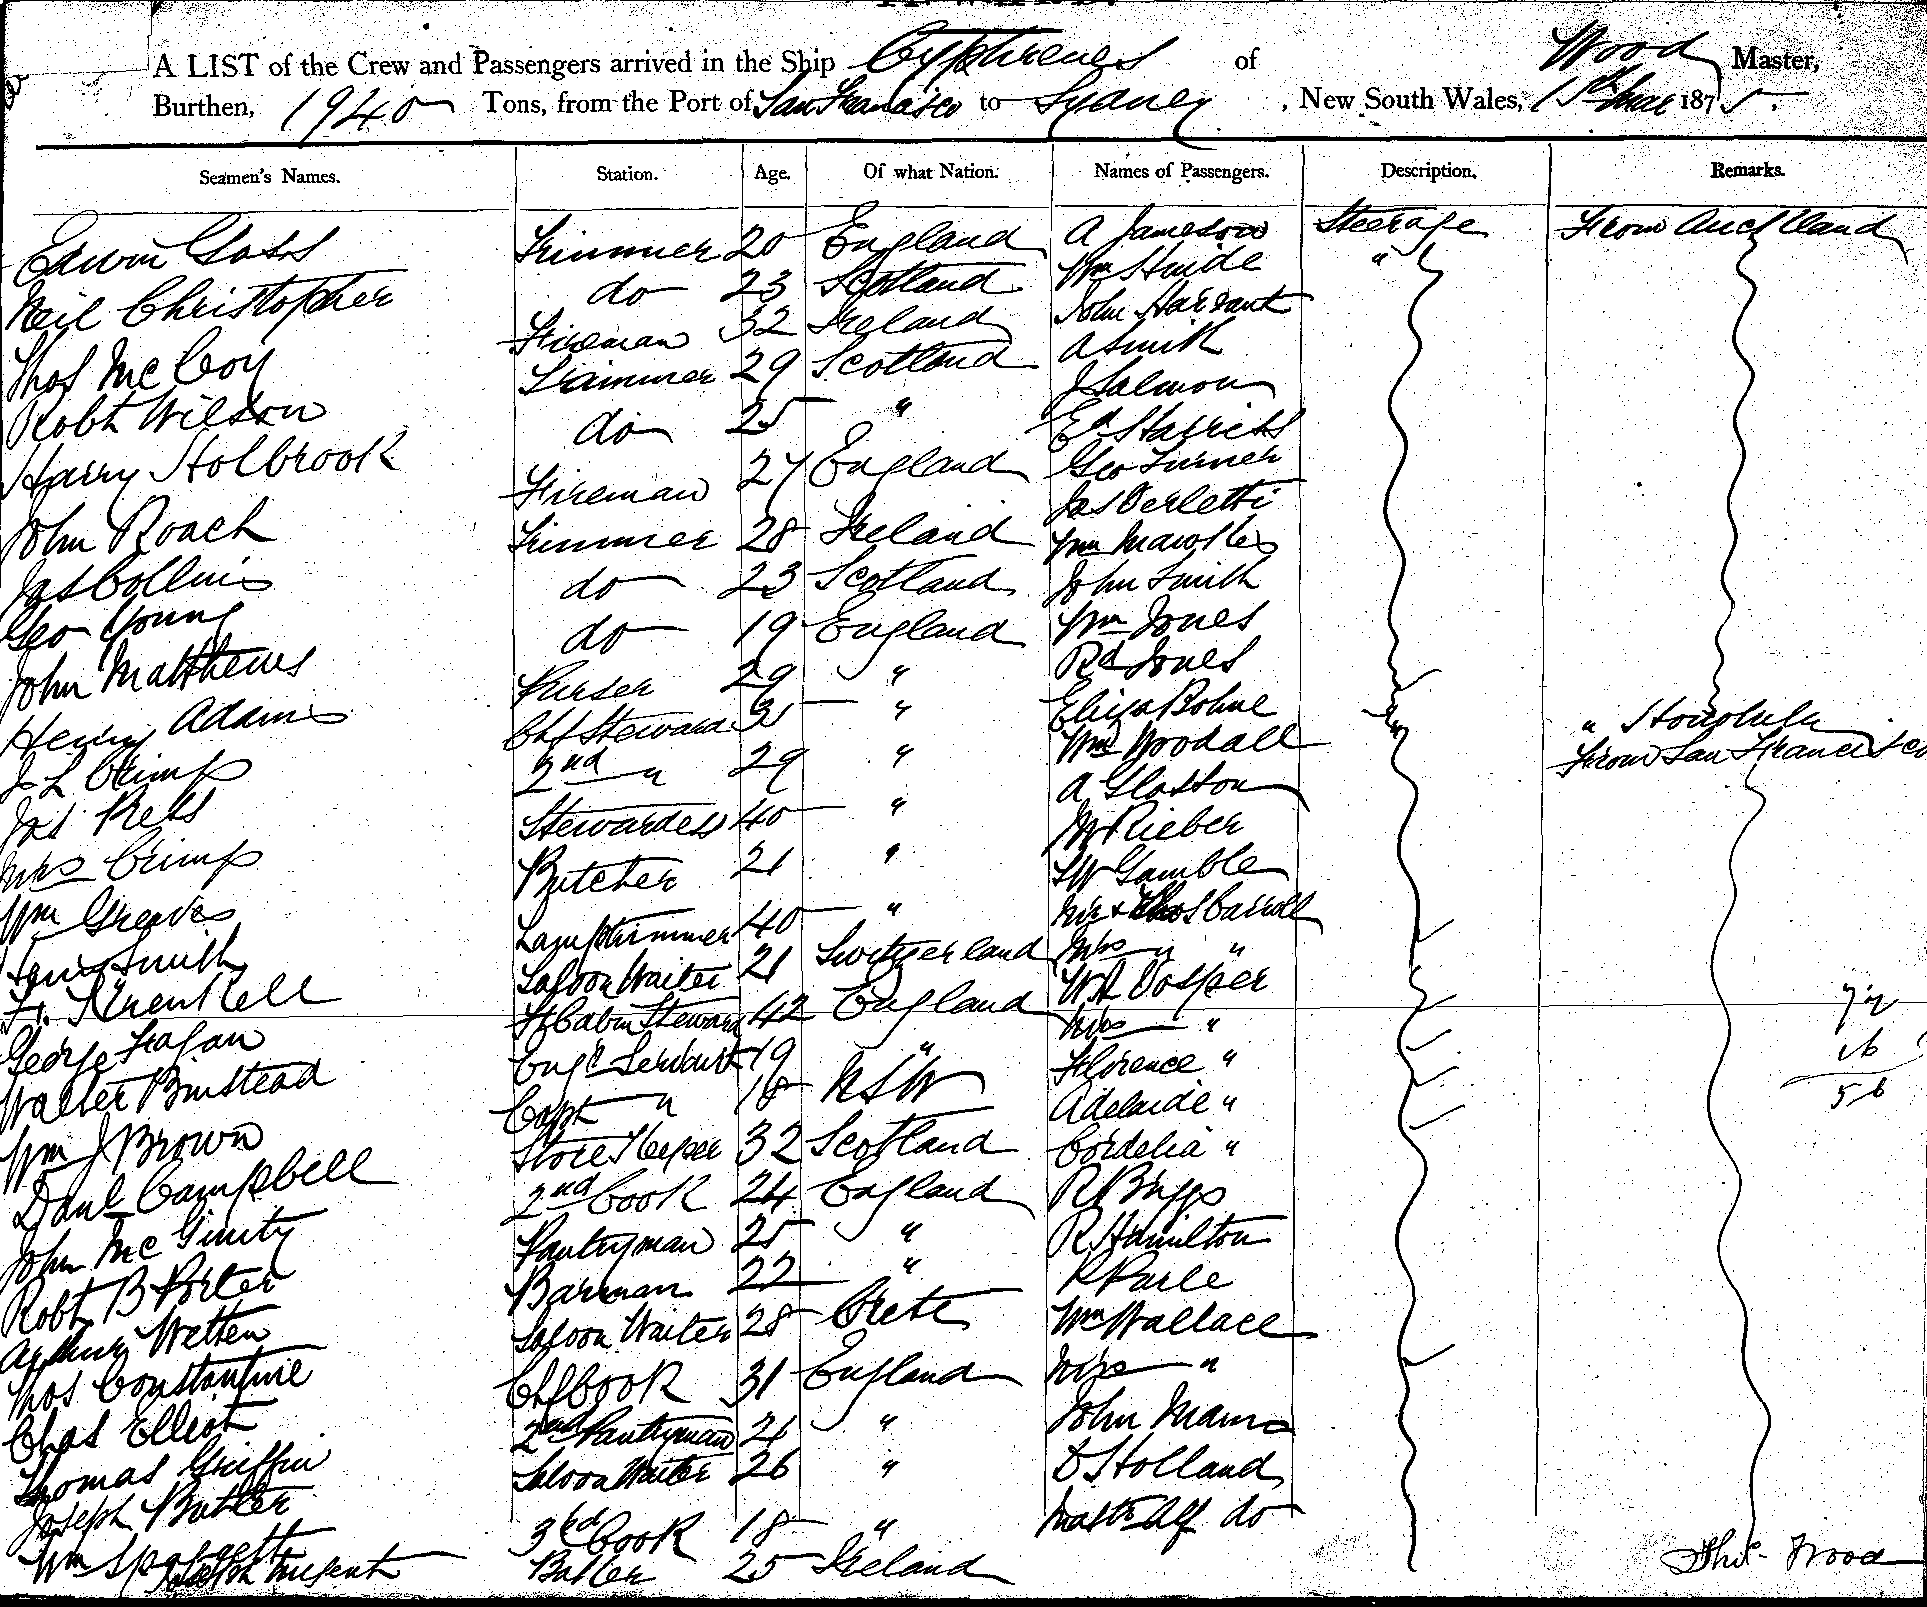 A LIST of the Crew and Passengers arrived in the Ship Cyphrenes of Wood Master,
Burthen, 1940 Tons, from the Port of San Francisco to Sydney, New South Wales, 1st June 1875.
Seamen's Names. Station. Age. Of what Nation. Names of Passengers. Description. Remarks.
Edwin Goss Trimmer 20 England A Jameson Steerage From Auckland
Neil Christopher do 23 Scotland Wm Hinde "
Thos McCoy Fireman 32 Ireland John Harsant
Robt Wilson Trimmer 29 Scotland A Smith
Harry Holbrook do 25 " J Salmon
Ed Harriss
John Roach Fireman 27 England Geo Turner
Jas Verletti
Jas Collins Trimmer 28 Ireland Wm
Geo Young do 23 Scotland John Smith
John Matthews do 19 England Wm Jones
Henry Adams Purser 29 " Rd Jones
J L Crimp Chf Steward 35 " Eliza Bohne " Honolulu
Jas 2nd " 29 " Wm Woodall From San Francisco
Mrs Crimp Stewardess 40 " A Glasson
Wm Greaves Butcher 21 " M Rieber
Smith Lamptrimmer 40 " Gamble
Mr & Carroll
Saloon Waiter 21 Switzerland Mrs " "
George Fagan F Cabin Steward 42 England W A Vosper
Walter Binstead Engrs Servant 19 " Mrs "
Wm J Brown Capt " 18 NSW Florence "
Adelaide "
Danl Campbell Store Keeper 32 Scotland Cordelia "
John McGinity 2nd Cook 24 England R Briggs
Robt B Porter Pantryman 25 " R Hamilton
Arthur Wetten Barman 22 "
Thos Constantine Saloon Waiter 28 Crete Wm Wallace
Chas Elliott Chf Cook 31 England Mrs "
Thomas Griffin 2nd Pantryman 21 " John
Joseph Butler Saloon Waiter 26 " D Holland
Wm 3rd Cook 18 " Mastr Alf do
Nugent Butler 25 Ireland
56
Wood